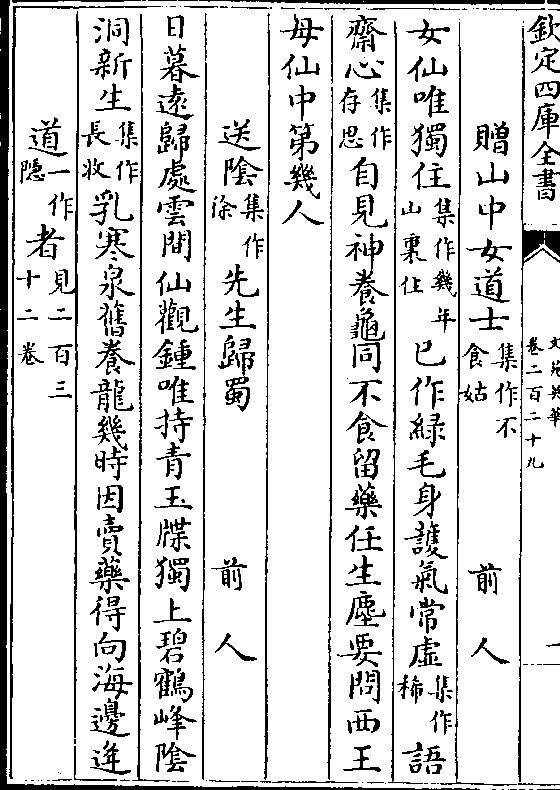 欽定四庫全書
文苑英華
卷二百二十九
贈山中女道士集作不食姑 前人
女仙唯獨住集作幾年山裏住已作綠毛身護氣常虛集作稀語
齋心集作存思自見神養龜同不食留藥任生塵要問西王
母仙中第幾人
送陰集作徐先生歸蜀 前人
日暮遠歸處雲間仙觀鍾唯持青玉牒獨上碧鶴峰陰
洞新生集作長收乳寒泉舊養龍幾時因賣藥得向海邊逢
道一作隱者見二百三十二卷